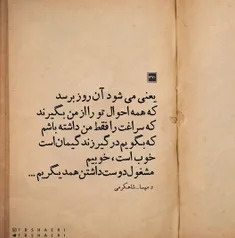 یعنی می شود آن روز برسد
که همه احوال تو را از من بگیرند
که سراغت را فقط من داشته باشم
که بگویم درگیر زندگیمان است
خوب است ، خوبیم
مشغول دوست داشتن همدیگریم ...